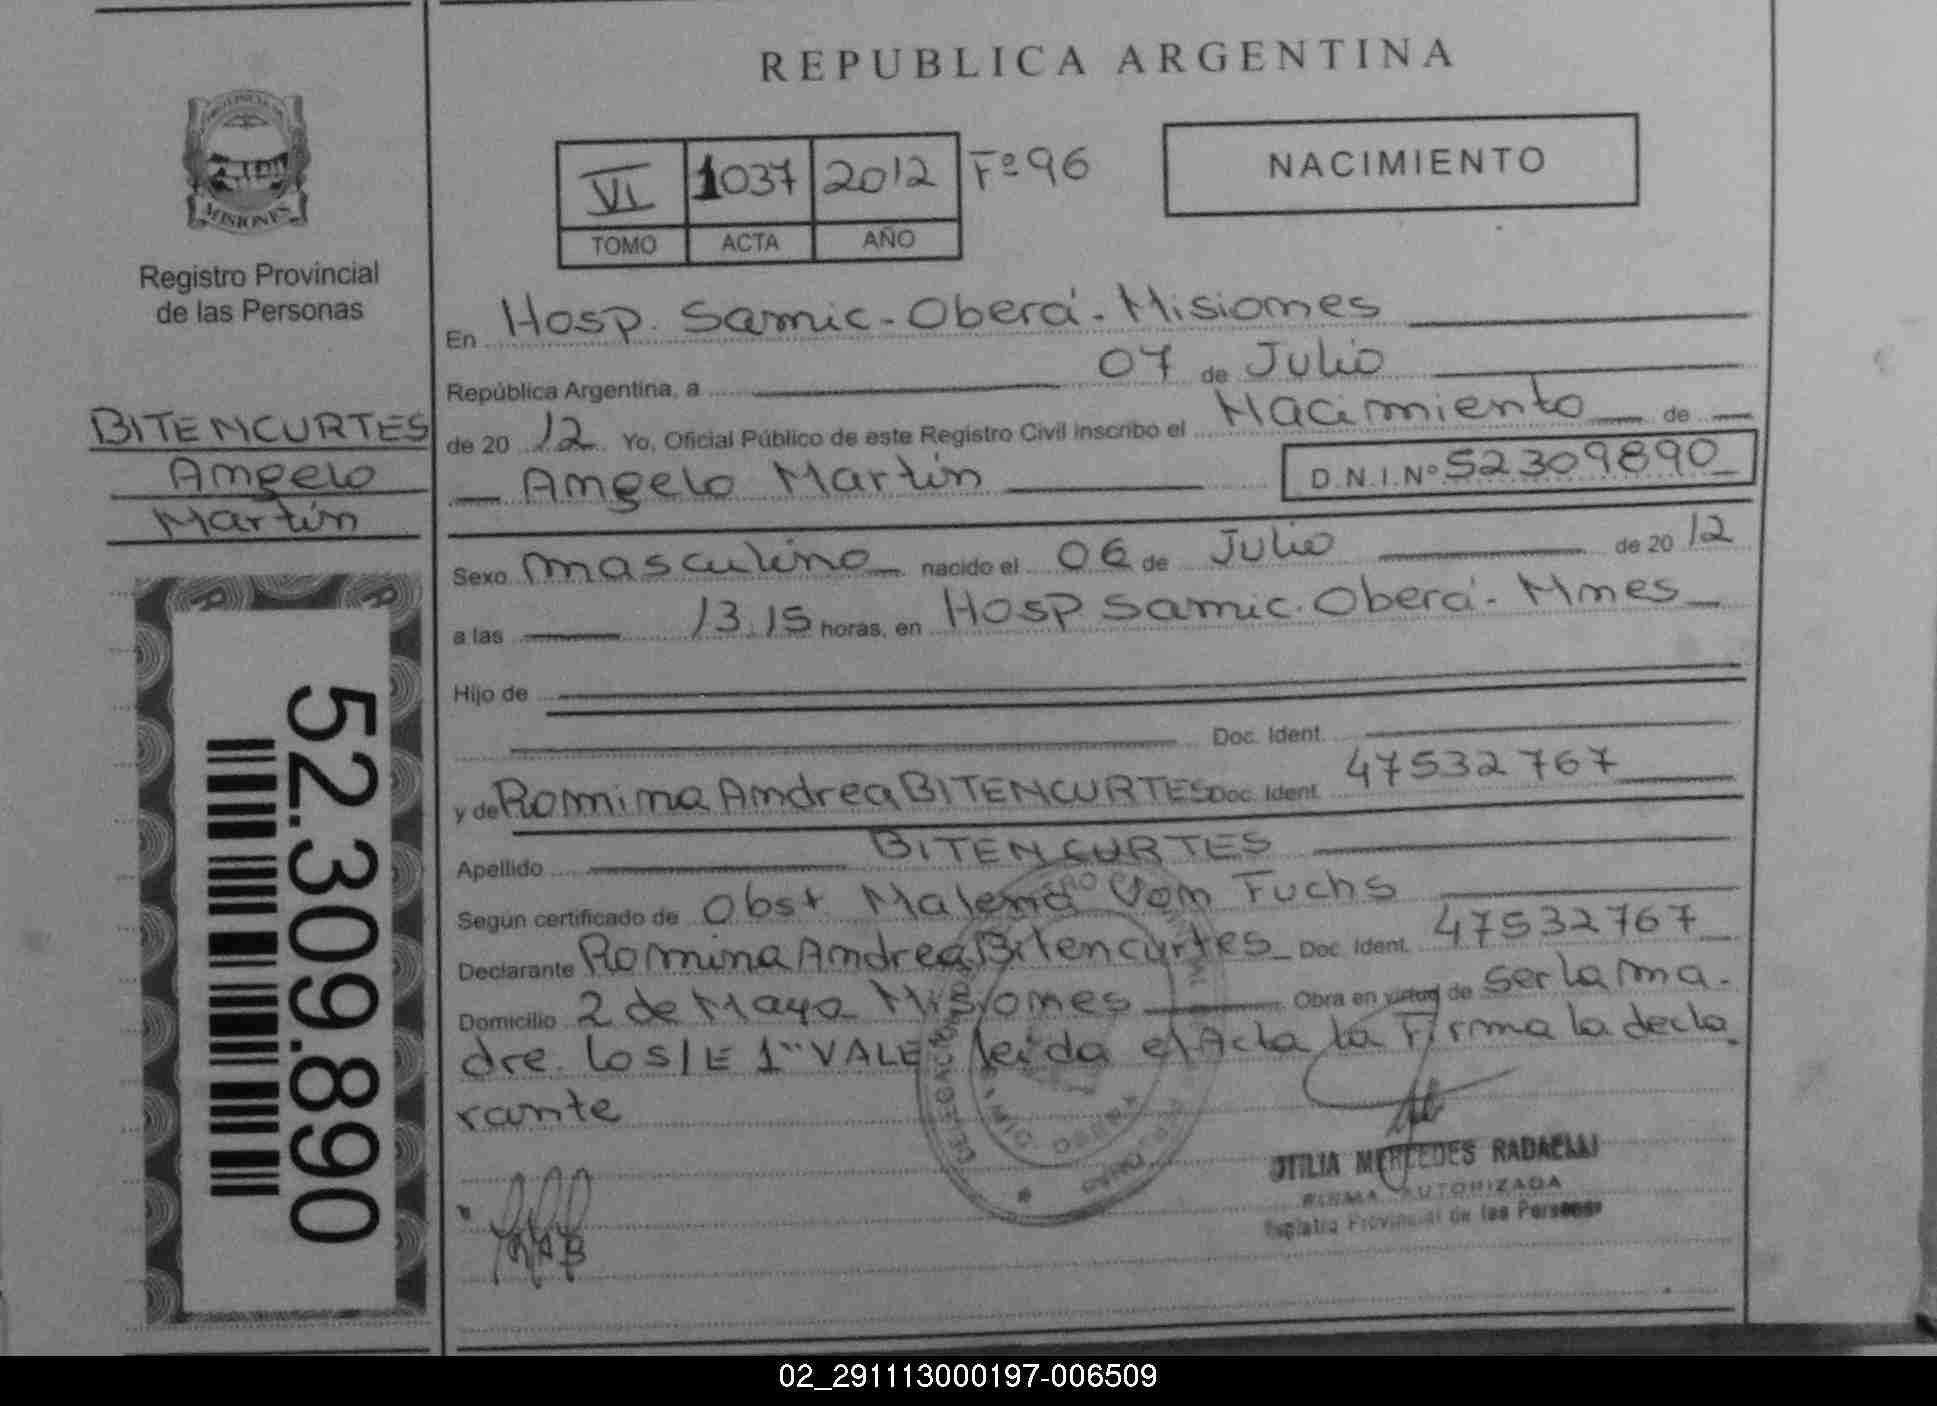 REPUBLICA ARGENTINA
PROVINCIA DE
MISIONES
Registro Provincial
de las Personas
VI 1037 2012 Fº 96
TOMO ACTA AÑO
NACIMIENTO
BITENCURTES
Angelo
Martín
52.309.890
En Hosp. Samic - Oberá - Misiones
República Argentina, a 07 de Julio
de 20 12 Yo, Oficial Público de este Registro Civil inscribo el Nacimiento de
Angelo Martín D.N.I.Nº 52309890
Sexo masculino nacido el 06 de Julio de 20 12
a las 13.15 horas, en Hosp Samic. Oberá - Mnes
Hijo de
Doc. Ident.
y de Romina Andrea BITENCURTES Doc. Ident. 47532767
Apellido BITENCURTES
Según certificado de Obst Malena Von Fuchs
Declarante Romina Andrea Bitencurtes Doc. Ident. 47532767
Domicilio 2 de Mayo Misiones Obra en virtud de ser la ma-
dre. lo s/E 1" VALE leída el Acta la Firma la decla
rante
OTILIA MERCEDES RADAELLI
FIRMA AUTORIZADA
Registro Provincial de las Personas
02_291113000197-006509